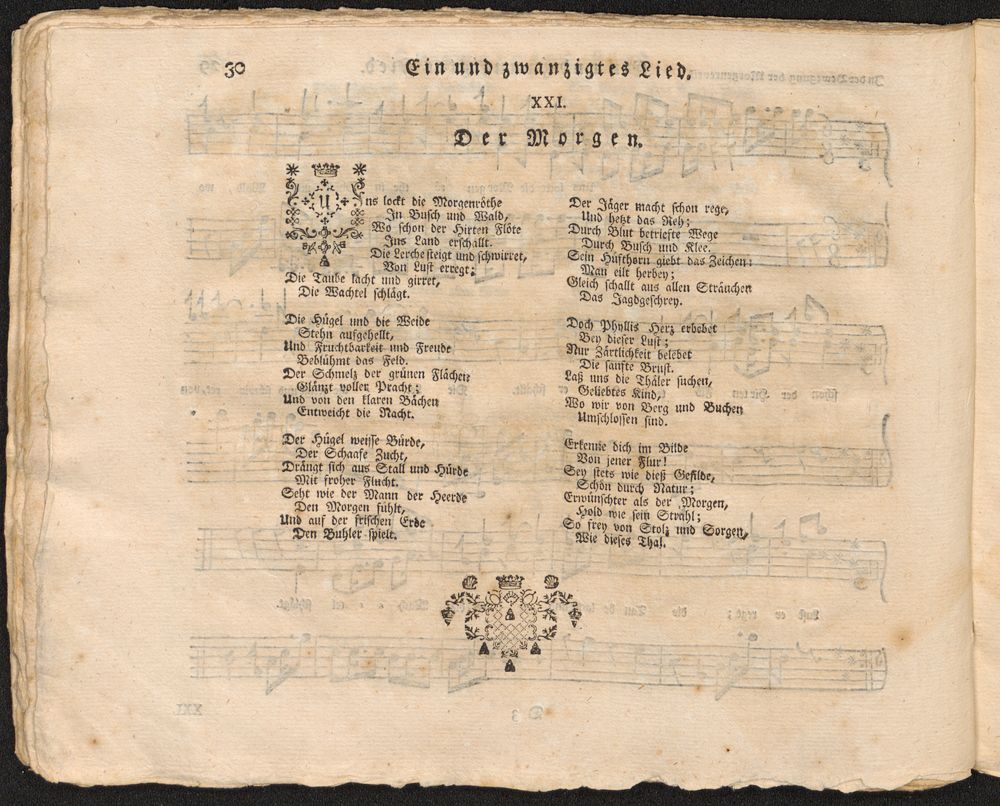 30
Ein und zwanzigtes Lied.
XXI.
Der Morgen.
Uns lockt die Morgenröthe
In Busch und Wald,
Wo schon der Hirten Flöte
Ins Land erschallt.
Die Lerche steigt und schwirret,
Von Lust erregt;
Die Taube lacht und girret,
Die Wachtel schlägt.
Die Hügel und die Weide
Stehn aufgehellt,
Und Fruchtbarkeit und Freude
Beblühmt das Feld.
Der Schmelz der grünen Flächen
Glänzt voller Pracht;
Und von den klaren Bächen
Entweicht die Nacht.
Der Hügel weisse Bürde,
Der Schaafe Zucht,
Drängt sich aus Stall und Hürde
Mit froher Flucht.
Seht wie der Mann der Heerde
Den Morgen fühlt,
Und auf der frischen Erde
Den Buhler spielt.
Der Jäger macht schon rege,
Und hetzt das Reh;
Durch Blut betriefte Wege
Durch Busch und Klee.
Sein Hüfthorn giebt das Zeichen;
Man eilt herbey;
Gleich schallt aus allen Sträuchen
Das Jagdgeschrey.
Doch Phyllis Herz erbebet
Bey dieser Lust;
Nur Zärtlichkeit belebet
Die sanfte Brust.
Laß uns die Thäler suchen,
Geliebtes Kind,
Wo wir von Berg und Buchen
Umschlossen sind.
Erkenne dich im Bilde
Von jener Flur!
Sey stets wie dieß Gefilde,
Schön durch Natur;
Erwünschter als der Morgen,
Hold wie sein Strahl;
So frey von Stolz und Sorgen,
Wie dieses Thal.